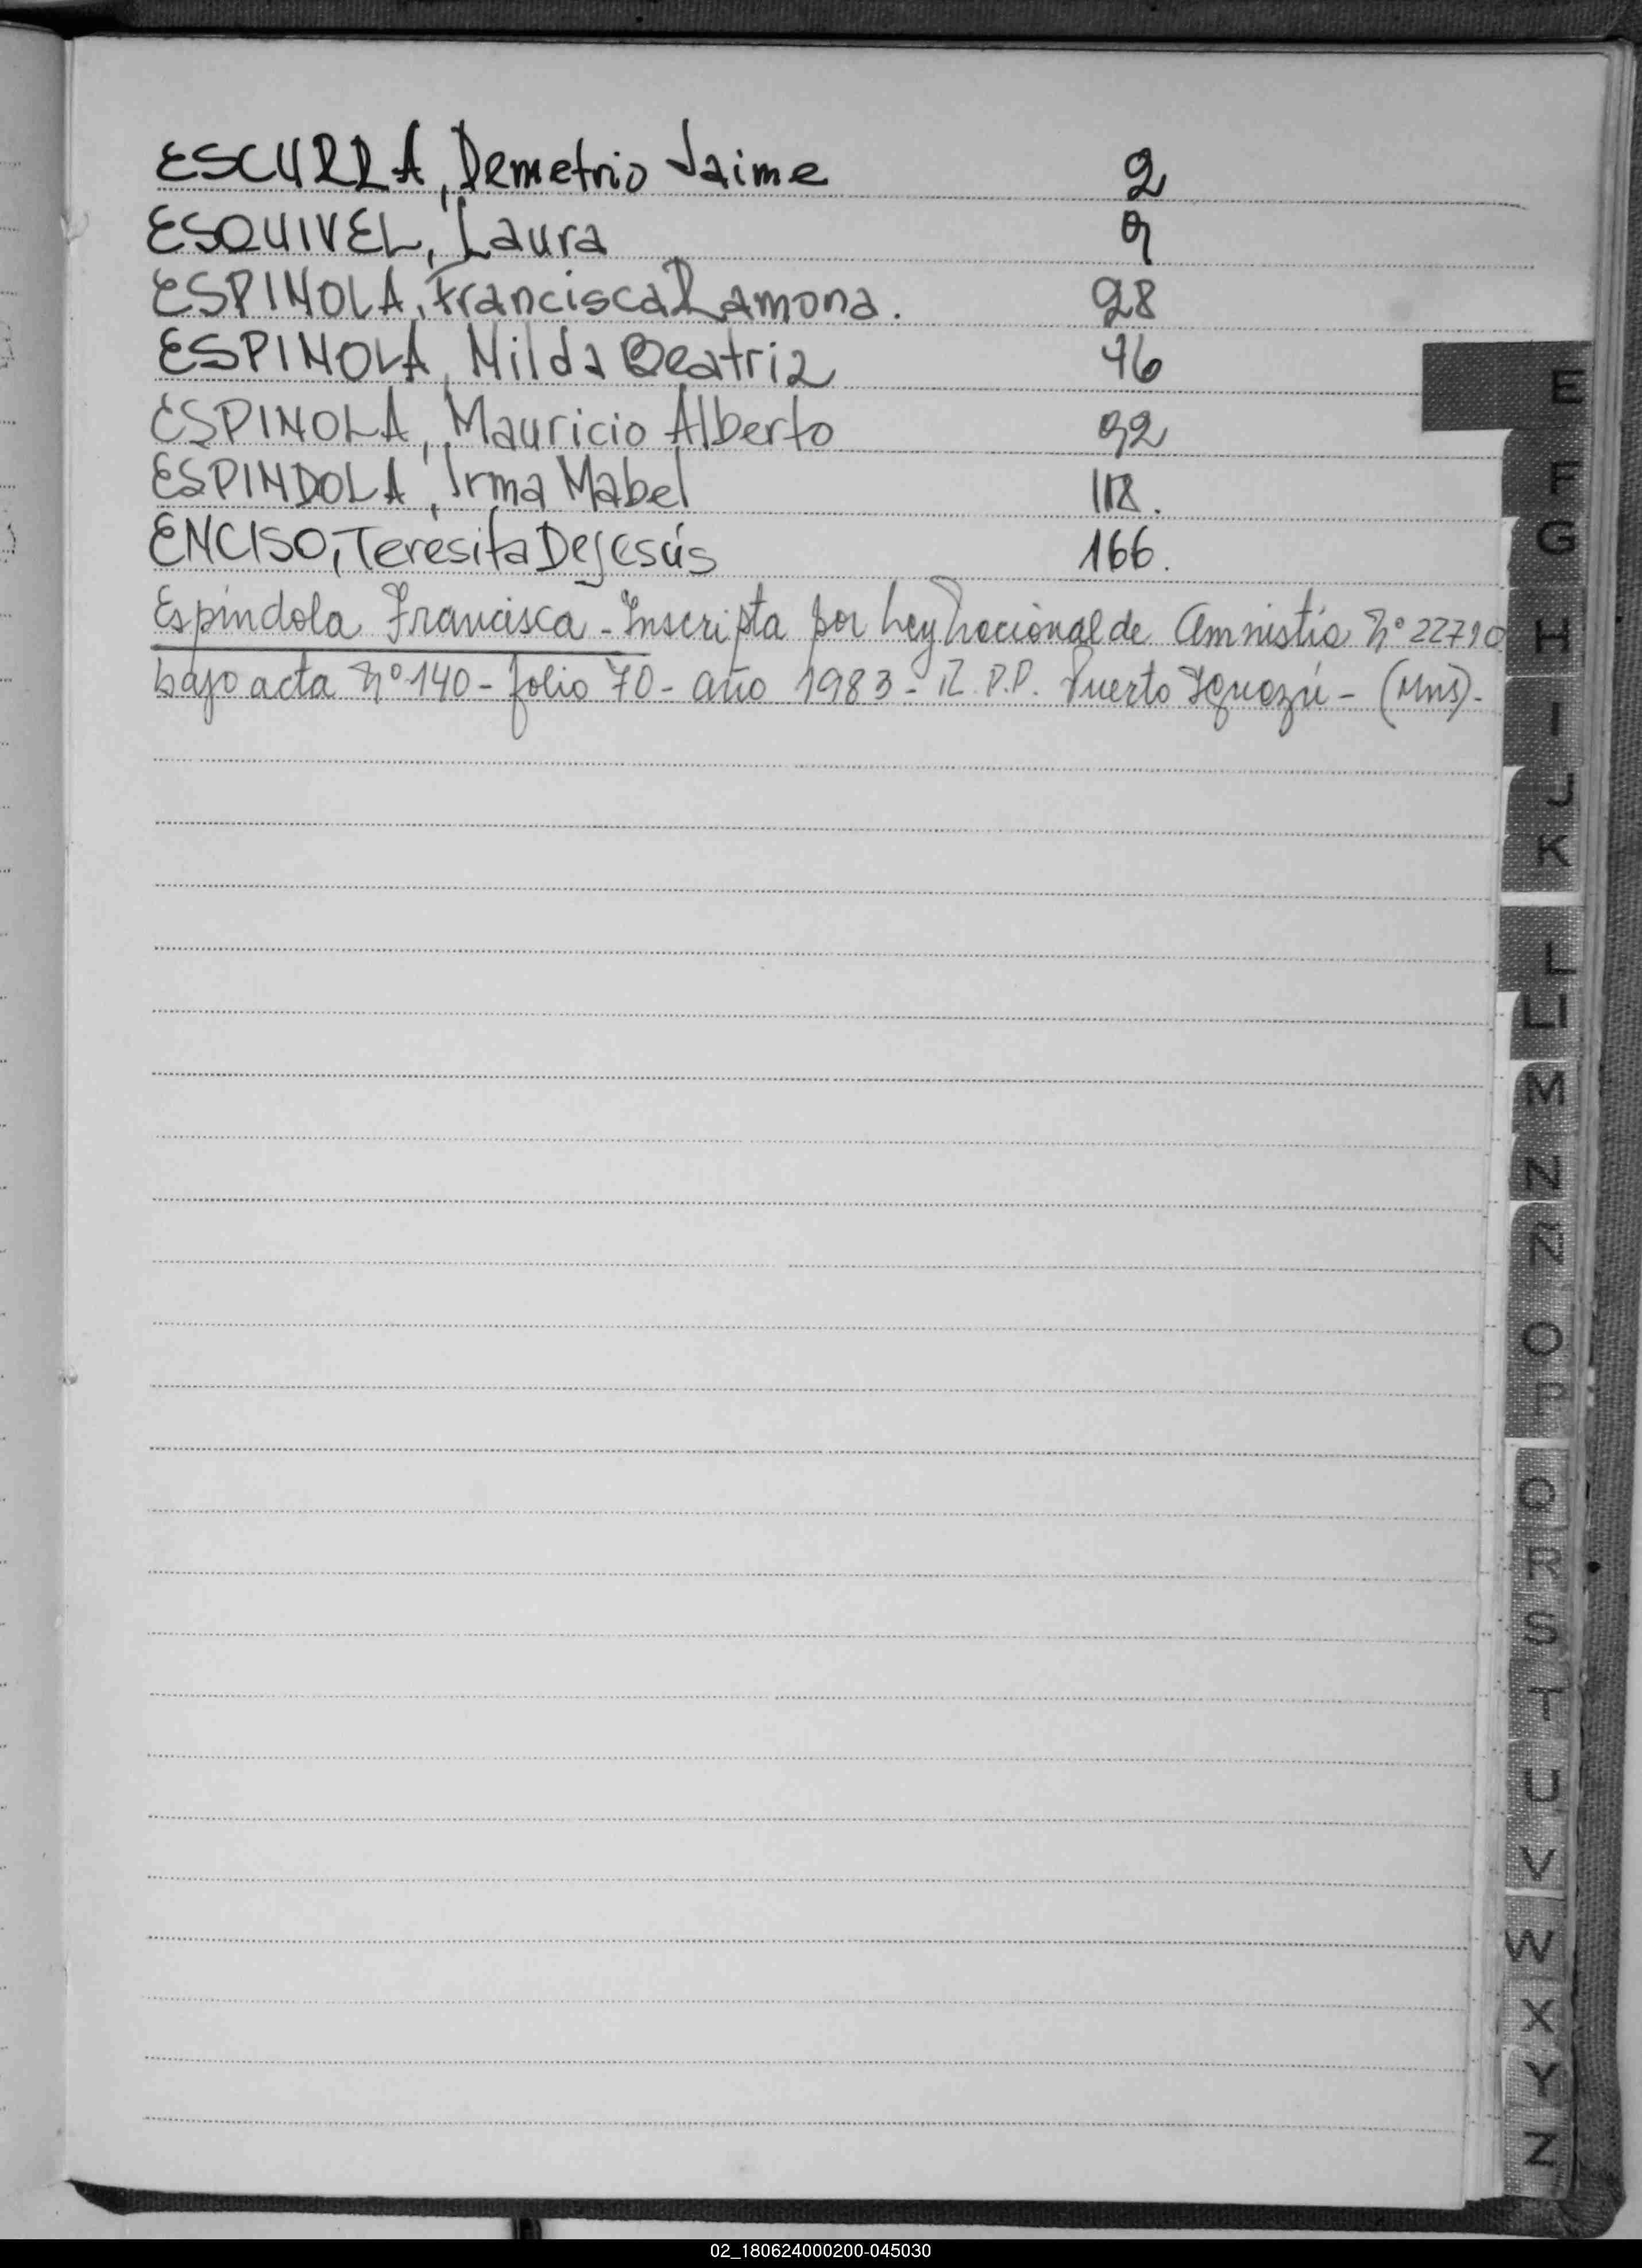 ESCURRA, Demetrio Jaime 2
ESQUIVEL, Laura 9
ESPINOLA, Francisca Ramona. 28
ESPINOLA, Nilda Beatriz 46
ESPINOLA, Mauricio Alberto 92
ESPINDOLA, Irma Mabel 118.
ENCISO, Teresita De Jesús 166.
Espíndola Francisca - Inscripta por Ley Nacional de Amnistía Nº 22710
bajo acta Nº 140 - folio 70 - año 1983 - R.P.P. Puerto Iguazú - (Mns).-
E
F
G
H
I
J
K
L
LL
M
N
Ñ
O
P
Q
R
S
T
U
V
W
X
Y
Z
02_180624000200-045030